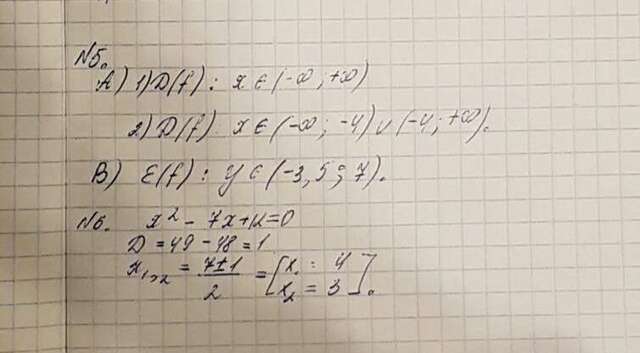 №5.
А) 1) D(f): x ∈ (-∞; +∞)
2) D(f) x ∈ (-∞; -4) ∪ (-4; +∞).
В) E(f): y ∈ (-3,5; 7).
№6. x² - 7x + 12 = 0
D = 49 - 48 = 1
x₁,₂ = 7±1/2 = [x₁ = 4
x₂ = 3].